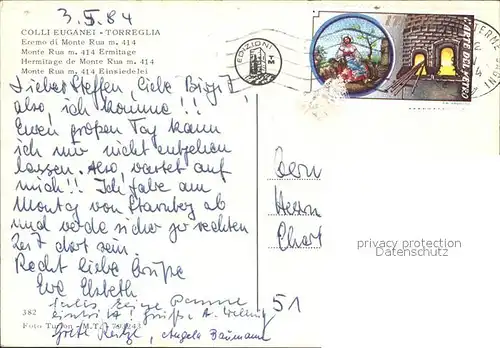 3.V.84
COLLI EUGANEI - TORREGLIA
Eremo di Monte Rua m. 414
Monte Rua m. 414 Ermitage
Hermitage de Monte Rua m. 414
Monte Rua m. 414 Einsiedelei
EDIZIONI
L'ARTE DEL VETRO
Lieber Steffen, liebe Birgit,
also, ich komme!!
Euren großen Tag kann
ich mir nicht entgehen
lassen. Also, wartet auf
mich!! Ich fahre am
Montag von Starnberg ab
und werde sicher zur rechten
Zeit dort sein.
Recht liebe Grüße
Eure Elsbeth
Grete, Angela Baumann
Herrn
privacy protection
Datenschutz
51
382
Foto Turen - M.T.